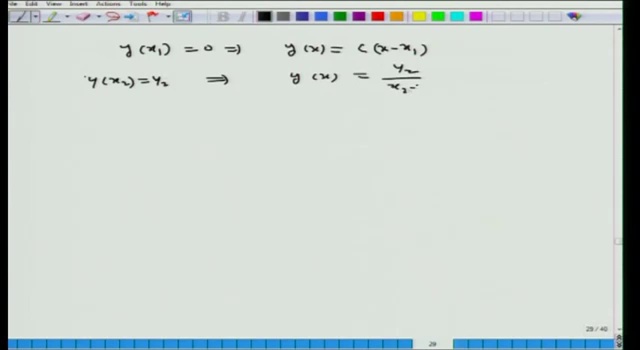 File Edit View Insert Actions Tools Help
y(x₁) = 0 ⇒ y(x) = C(x-x₁)
y(x₂) = y₂ ⇒ y(x) = y₂/x₂-
29 / 40
29